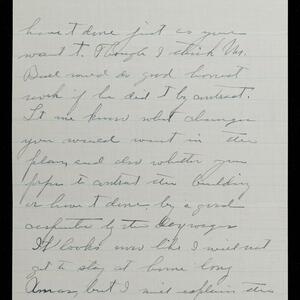 have it done just as you
want it. Though I think Mr.
would do good honest
work if he did it by contract.
Let me know what changes
you would want in the
plan, and also whether you
prefer to contract the building
or have it done, by a good
carpenter by the day wages
It looks now like I will not
get to stay at home long
Xmas, but I will explain this